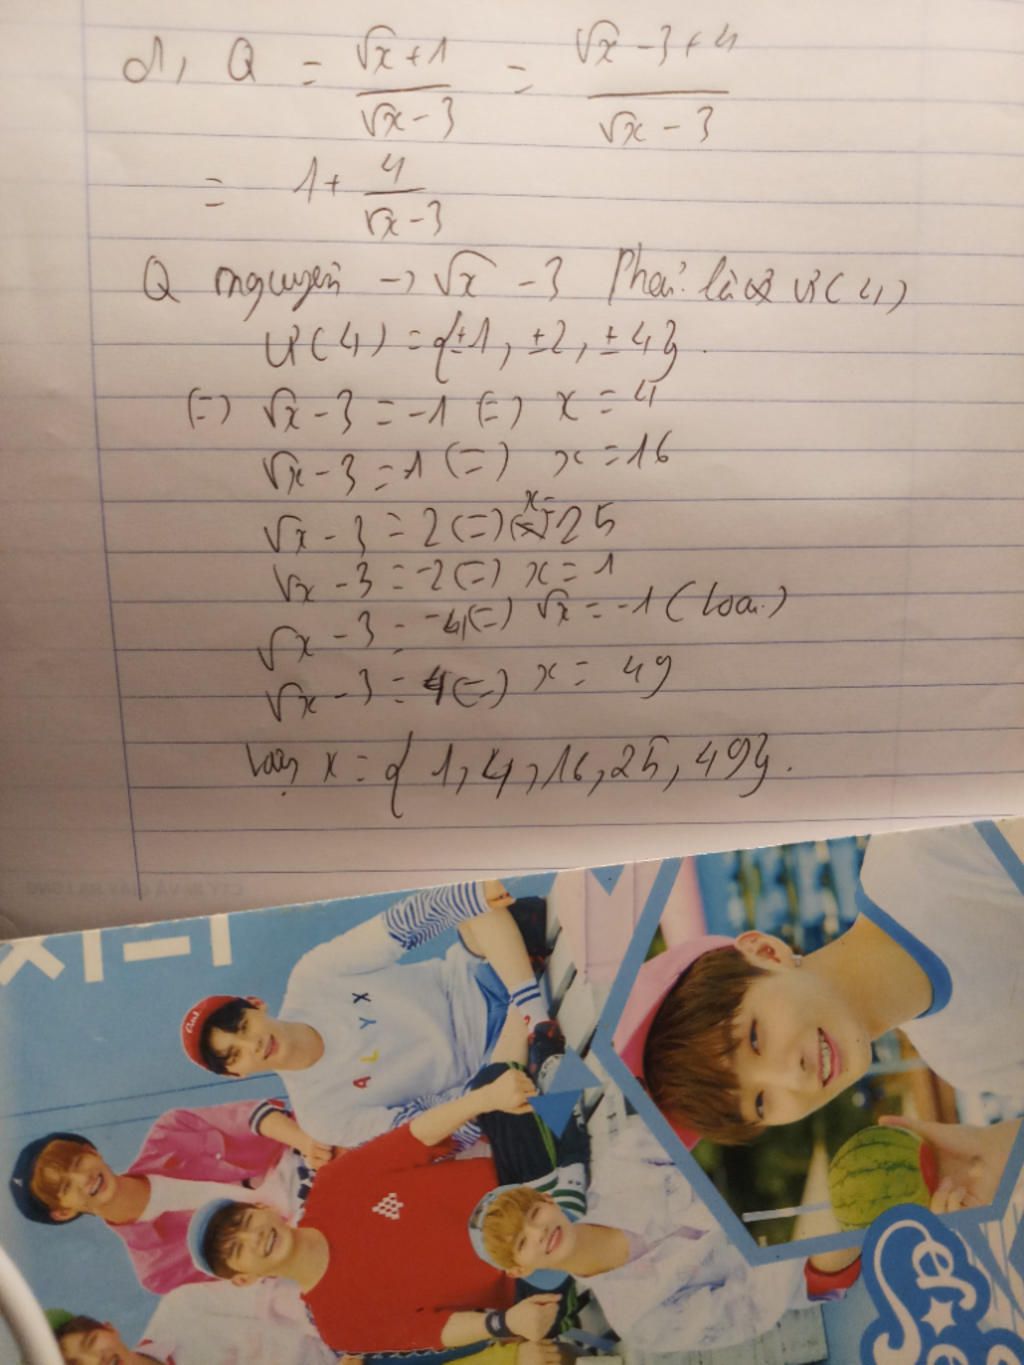 d, Q = (√x+1)/(√x-3) = (√x-3+4)/(√x-3)
= 1+ 4/(√x-3)
Q nguyên → √x -3 Phải là Ư(4)
Ư(4) = {±1, ±2, ±4}.
(=) √x-3 = -1 (=) x = 4
√x-3 = 1 (=) x = 16
√x-3 = 2 (=) x = 25
√x-3 = -2 (=) x = 1
√x-3 = -4 (=) √x = -1 (Loại)
√x-3 = 4 (=) x = 49
Vậy x = { 1, 4, 16, 25, 49}.
ALYX